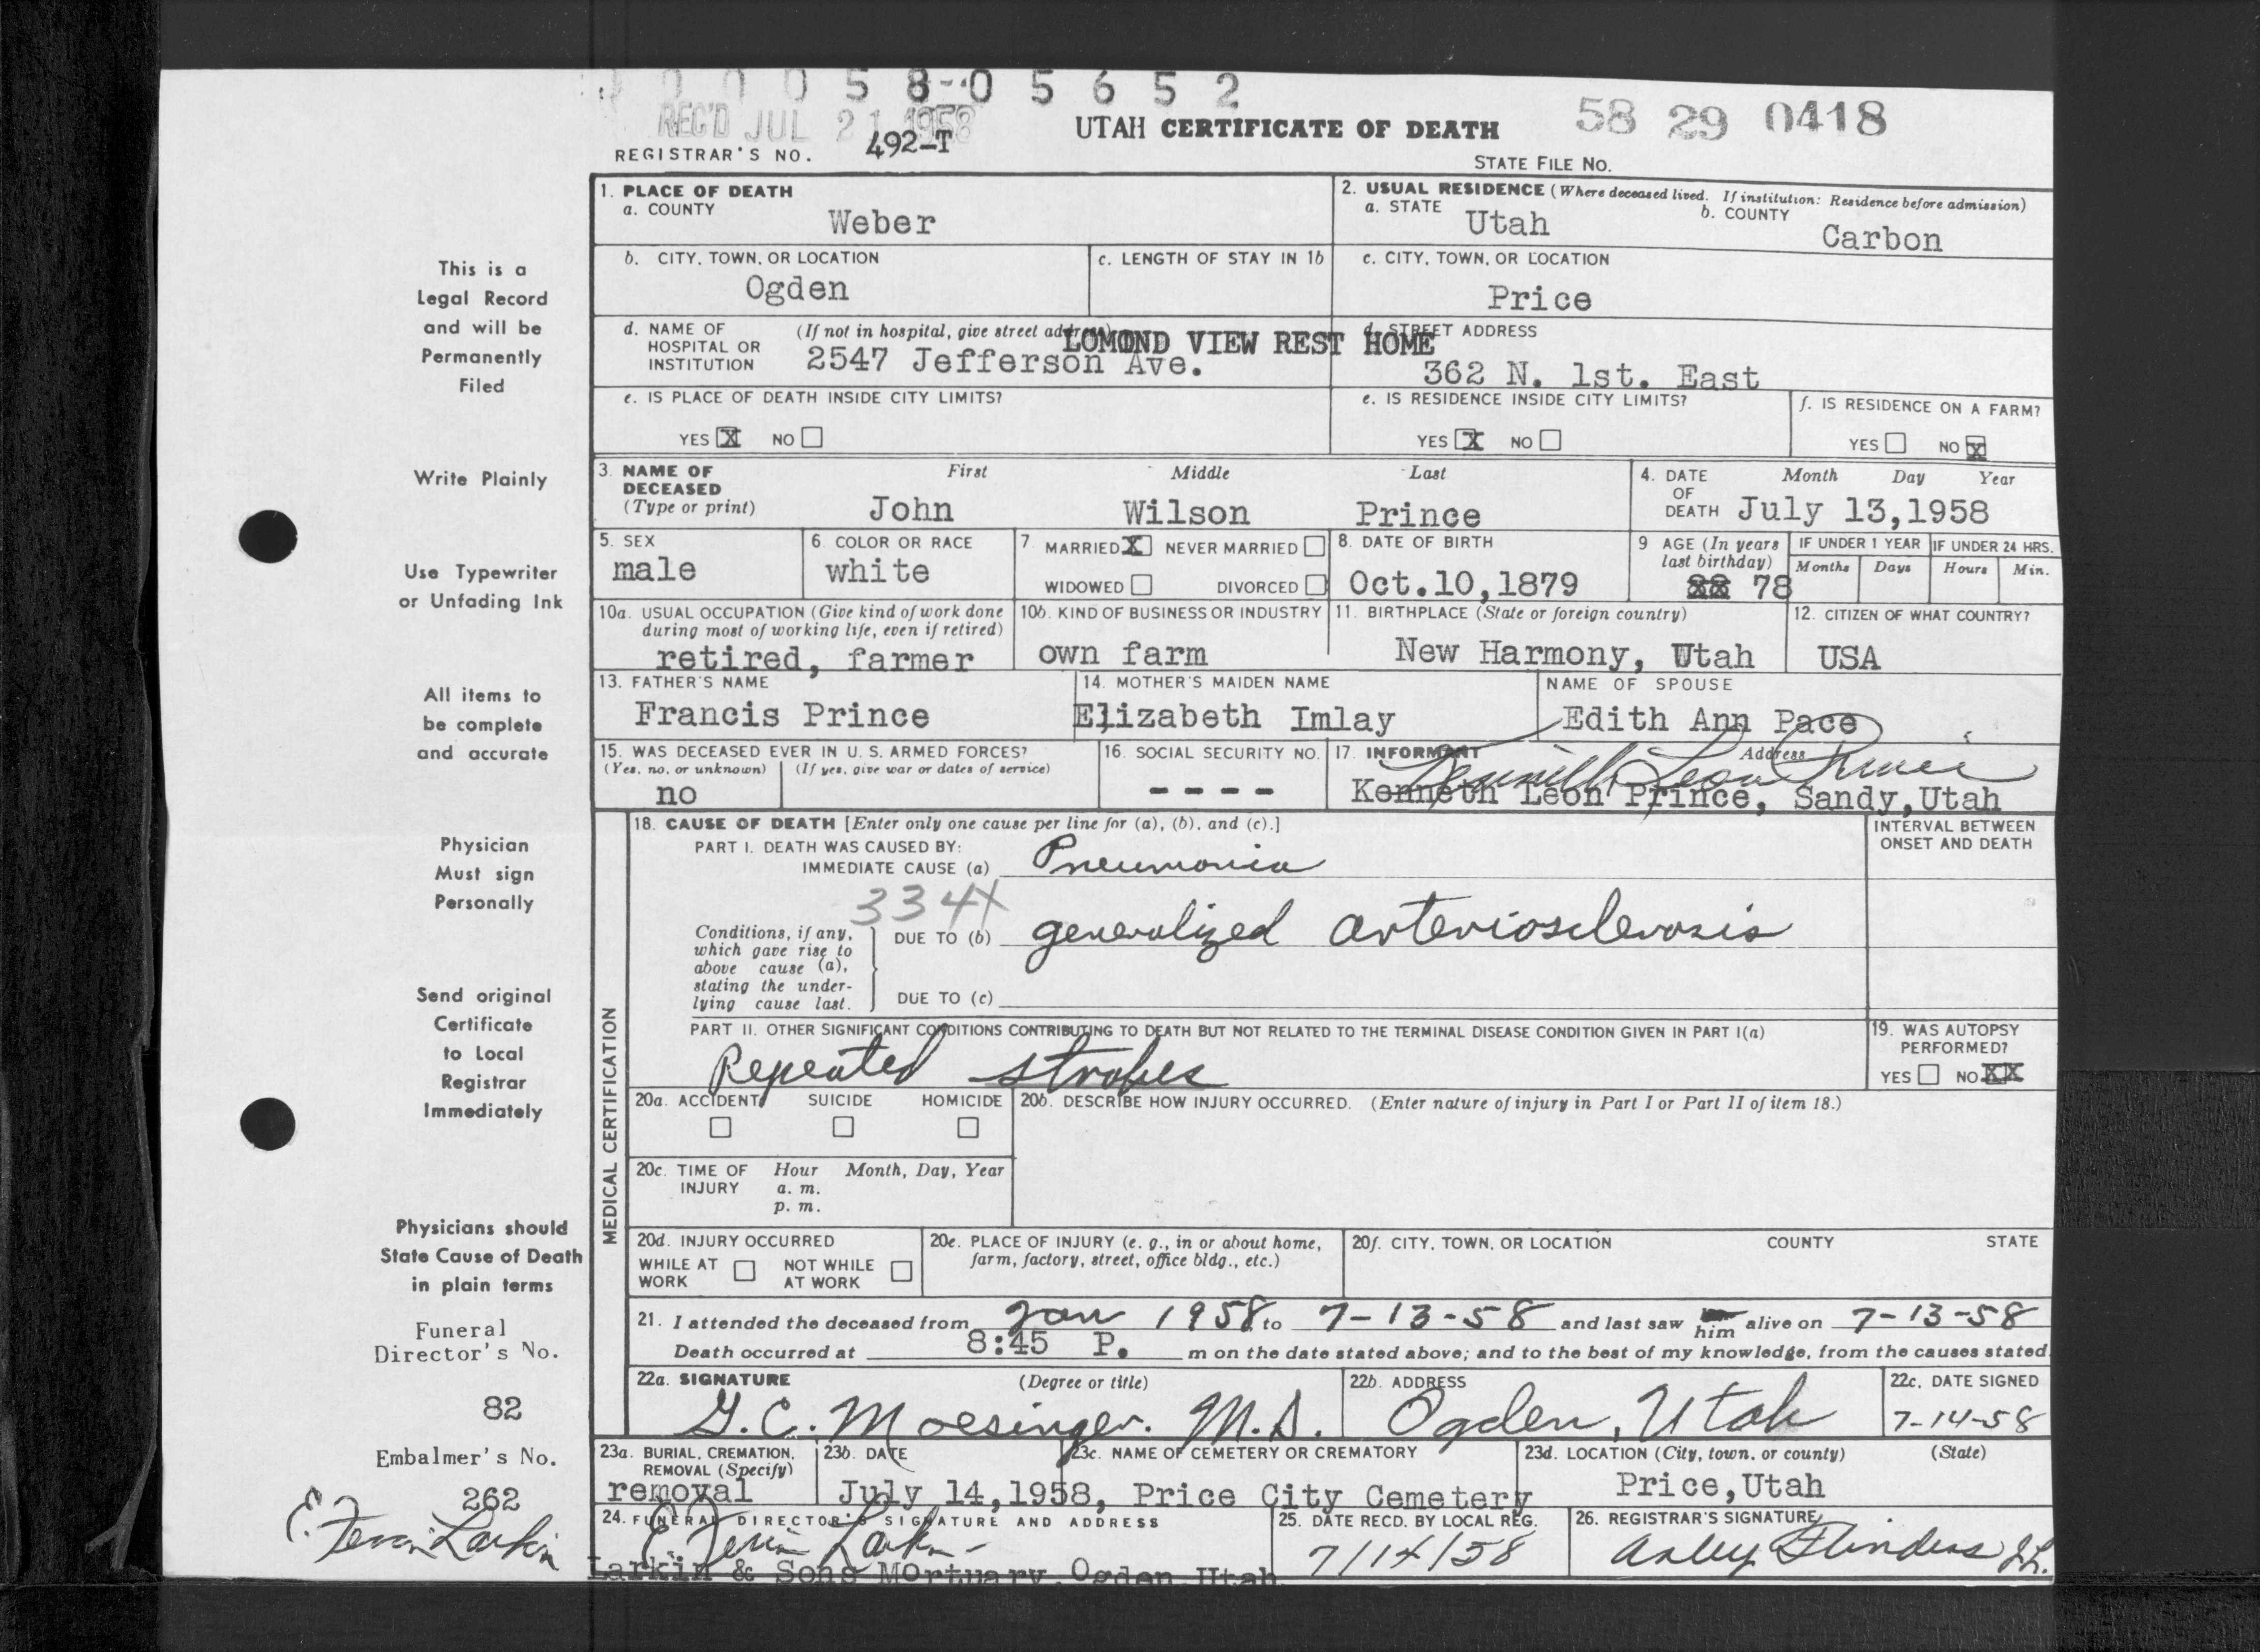 0 0 0 5 8 - 0 5 6 5 2
REC'D JUL 21 1958
58 29 0418
UTAH CERTIFICATE OF DEATH
REGISTRAR'S NO. 492-T
STATE FILE NO.
This is a
Legal Record
and will be
Permanently
Filed
Write Plainly
Use Typewriter
or Unfading Ink
All items to
be complete
and accurate
Physician
Must sign
Personally
Send original
Certificate
to Local
Registrar
Immediately
Physicians should
State Cause of Death
in plain terms
Funeral
Director's No.
82
Embalmer's No.
262
E. Larkin
1. PLACE OF DEATH
a. COUNTY
Weber
2. USUAL RESIDENCE (Where deceased lived. If institution: Residence before admission)
a. STATE
Utah
b. COUNTY
Carbon
b. CITY, TOWN, OR LOCATION
Ogden
c. LENGTH OF STAY IN 1b
c. CITY, TOWN, OR LOCATION
Price
d. NAME OF HOSPITAL OR INSTITUTION
(If not in hospital, give street address)
LOMOND VIEW REST HOME
2547 Jefferson Ave.
d. STREET ADDRESS
362 N. 1st. East
e. IS PLACE OF DEATH INSIDE CITY LIMITS?
YES X NO
e. IS RESIDENCE INSIDE CITY LIMITS?
YES X NO
f. IS RESIDENCE ON A FARM?
YES NO X
3. NAME OF DECEASED
(Type or print)
First Middle Last
John Wilson Prince
4. DATE OF DEATH
Month Day Year
July 13,1958
5. SEX
male
6. COLOR OR RACE
white
7. MARRIED X NEVER MARRIED
WIDOWED DIVORCED
8. DATE OF BIRTH
Oct.10,1879
9 AGE (In years last birthday)
78
IF UNDER 1 YEAR
Months Days
IF UNDER 24 HRS.
Hours Min.
10a. USUAL OCCUPATION (Give kind of work done during most of working life, even if retired)
retired, farmer
10b. KIND OF BUSINESS OR INDUSTRY
own farm
11. BIRTHPLACE (State or foreign country)
New Harmony, Utah
12. CITIZEN OF WHAT COUNTRY?
USA
13. FATHER'S NAME
Francis Prince
14. MOTHER'S MAIDEN NAME
Elizabeth Imlay
NAME OF SPOUSE
Edith Ann Pace
15. WAS DECEASED EVER IN U. S. ARMED FORCES?
(Yes, no, or unknown) (If yes, give war or dates of service)
no
16. SOCIAL SECURITY NO.
- - - -
17. INFORMANT Address
Leon Prince
Kenneth Leon Prince, Sandy,Utah
MEDICAL CERTIFICATION
18. CAUSE OF DEATH [Enter only one cause per line for (a), (b), and (c).]
PART I. DEATH WAS CAUSED BY:
IMMEDIATE CAUSE (a) Pneumonia
334X
Conditions, if any, which gave rise to above cause (a), stating the underlying cause last.
DUE TO (b) generalized arteriosclerosis
DUE TO (c)
INTERVAL BETWEEN ONSET AND DEATH
PART II. OTHER SIGNIFICANT CONDITIONS CONTRIBUTING TO DEATH BUT NOT RELATED TO THE TERMINAL DISEASE CONDITION GIVEN IN PART I(a)
Repeated strokes
19. WAS AUTOPSY PERFORMED?
YES NO XX
20a. ACCIDENT SUICIDE HOMICIDE
20b. DESCRIBE HOW INJURY OCCURRED. (Enter nature of injury in Part I or Part II of item 18.)
20c. TIME OF INJURY
Hour Month, Day, Year
a. m.
p. m.
20d. INJURY OCCURRED
WHILE AT WORK NOT WHILE AT WORK
20e. PLACE OF INJURY (e. g., in or about home, farm, factory, street, office bldg., etc.)
20f. CITY, TOWN, OR LOCATION COUNTY STATE
21. I attended the deceased from Jan 1958 to 7-13-58 and last saw him alive on 7-13-58
Death occurred at 8:45 P. m on the date stated above; and to the best of my knowledge, from the causes stated.
22a. SIGNATURE (Degree or title)
G. C. Moesinger. M.D.
22b. ADDRESS
Ogden, Utah
22c. DATE SIGNED
7-14-58
23a. BURIAL, CREMATION, REMOVAL (Specify)
removal
23b. DATE
July 14,1958,
23c. NAME OF CEMETERY OR CREMATORY
Price City Cemetery
23d. LOCATION (City, town, or county) (State)
Price,Utah
24. FUNERAL DIRECTOR'S SIGNATURE AND ADDRESS
E. Larkin
Larkin & Sons MOrtuary, Ogden, Utah
25. DATE RECD. BY LOCAL REG.
7/14/58
26. REGISTRAR'S SIGNATURE
Flinders